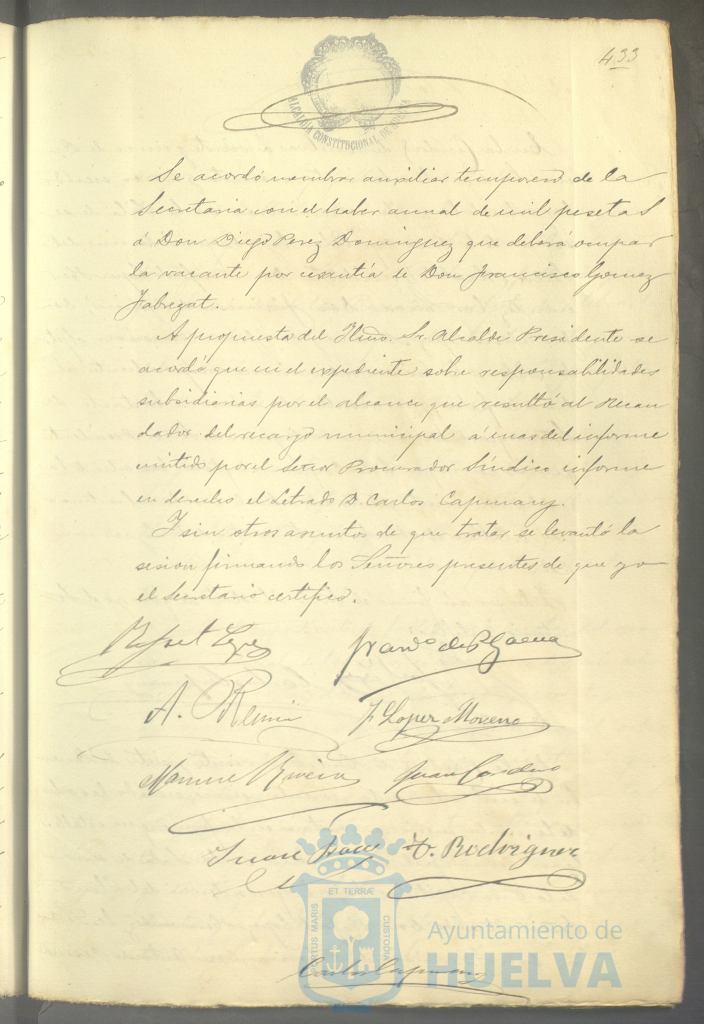 433
ALCALDÍA CONSTITUCIONAL DE HUELVA
Se acordó nombrar auxiliar temporero de la
Secretaria con el haber annal de mil pesetas
á Don Diego Perez Dominguez que deberá ocupar
la vacante por cesantía de Don Francisco Gomez
Fabregat.
A propuesta del Iltmo. Sr. Alcalde Presidente se
acordó que en el expediente sobre responsabilidades
subsidiarias por el alcance que resultó al Recau
dador del recargo municipal á mas del informe
emitido por el Señor Procurador Síndico informe
en derecho el Letrado D. Carlos Capmany.
Y sin otros asuntos de que tratar se levantó la
sesion firmando los Señores presentes de que yo
el Secretario certifico.
Rafael Lopez
Franco de P.
A.
F Lopez Moreno
Manuel Rivera
Juan Cordero
Juan
F. Rodriguez
Carlos Capmany
PORTUS MARIS ET TERRÆ CUSTODIA
Ayuntamiento de
HUELVA